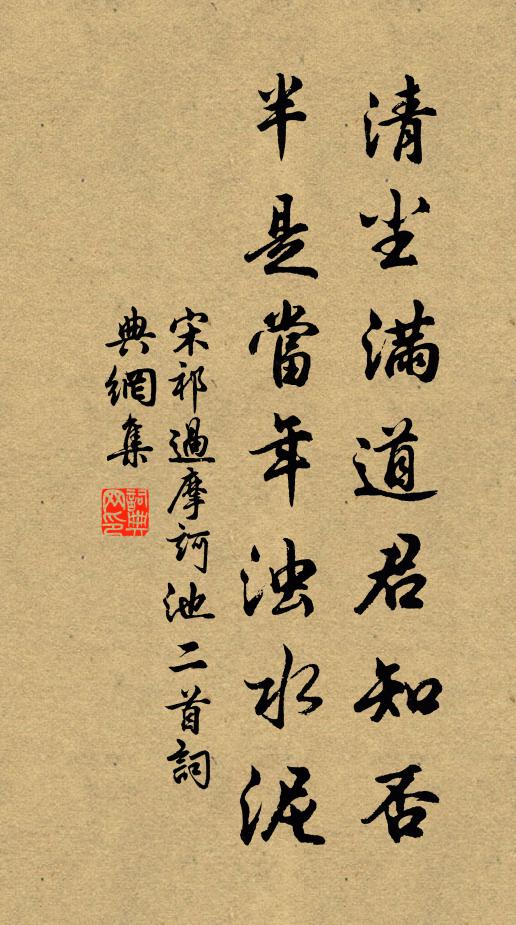 清尘满道君知否
半是當年浊水泥
宋祁過摩訶池二首詞
典網集
詞典網印